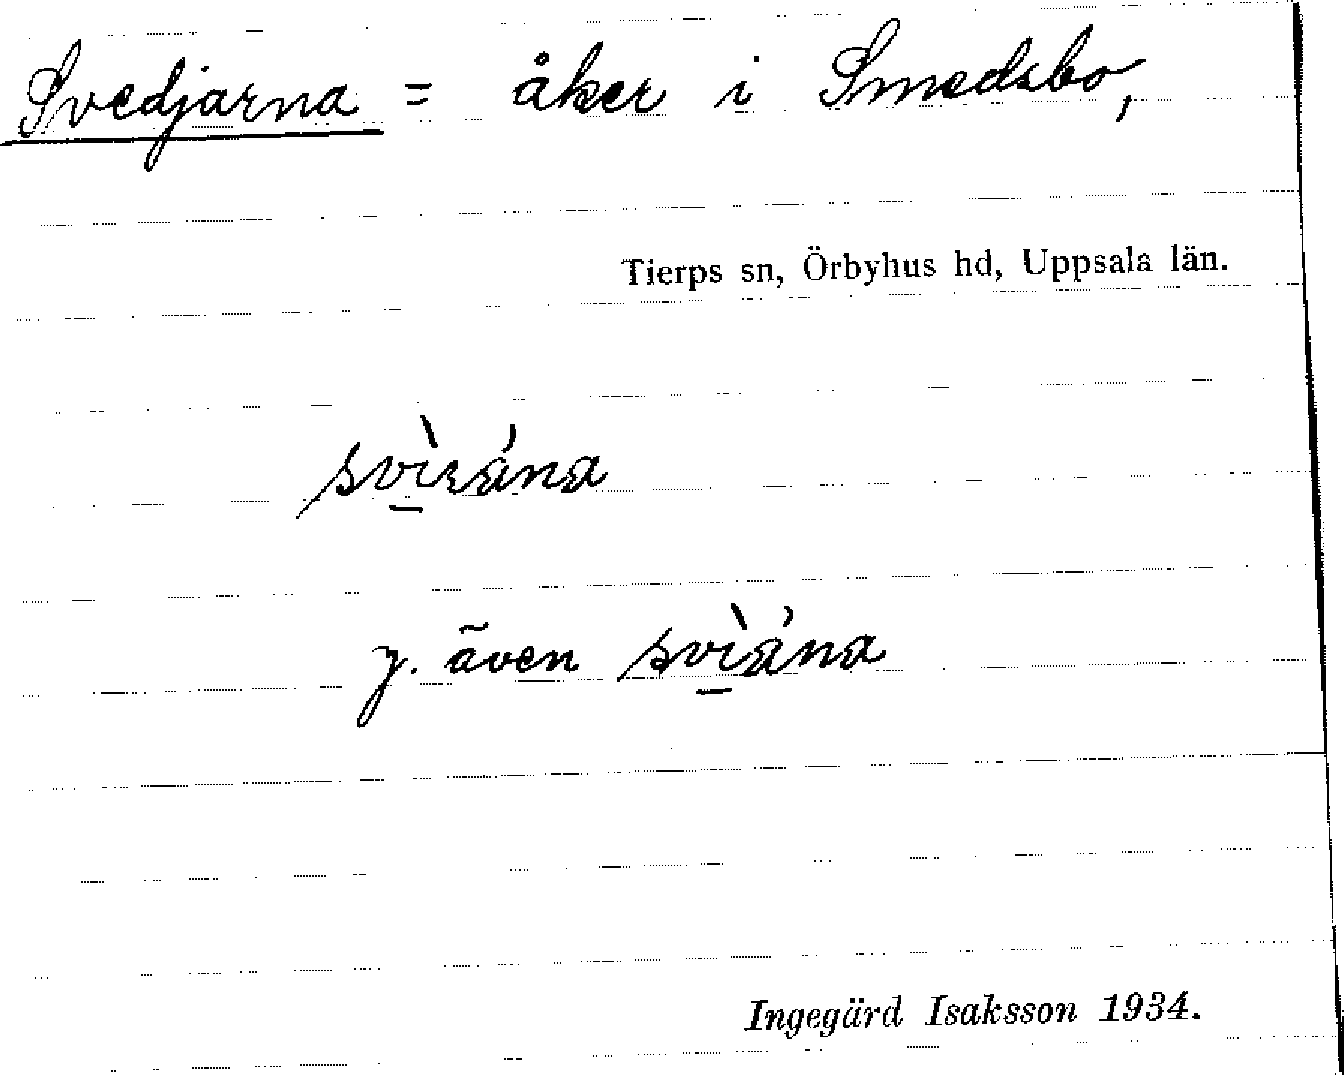 Svedjarna = åker i Smedsbo,
Tierps sn, Örbyhus hd, Uppsala län.
svì̱rána
y. även svì̱ána
Ingegärd Isaksson 1934.